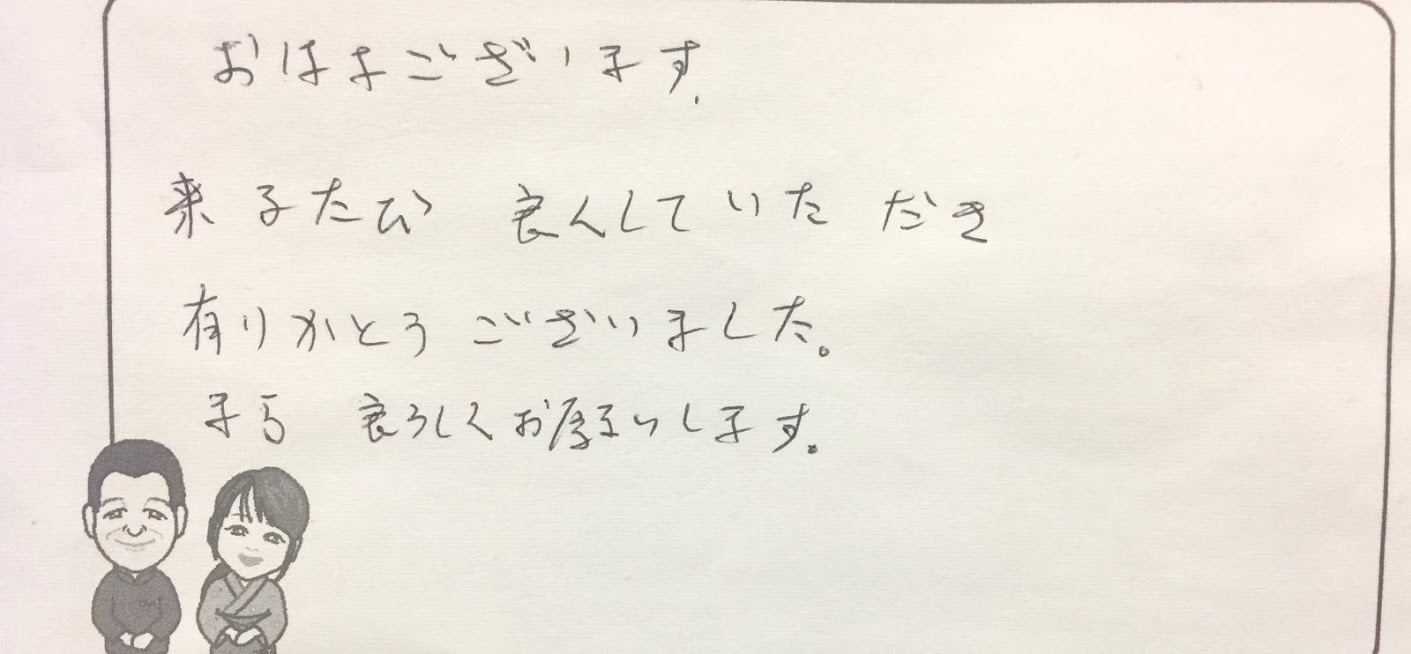 おはよございます.
来るたび 良くしていただき
有りがとうございました。
また 良ろしくお願いします。